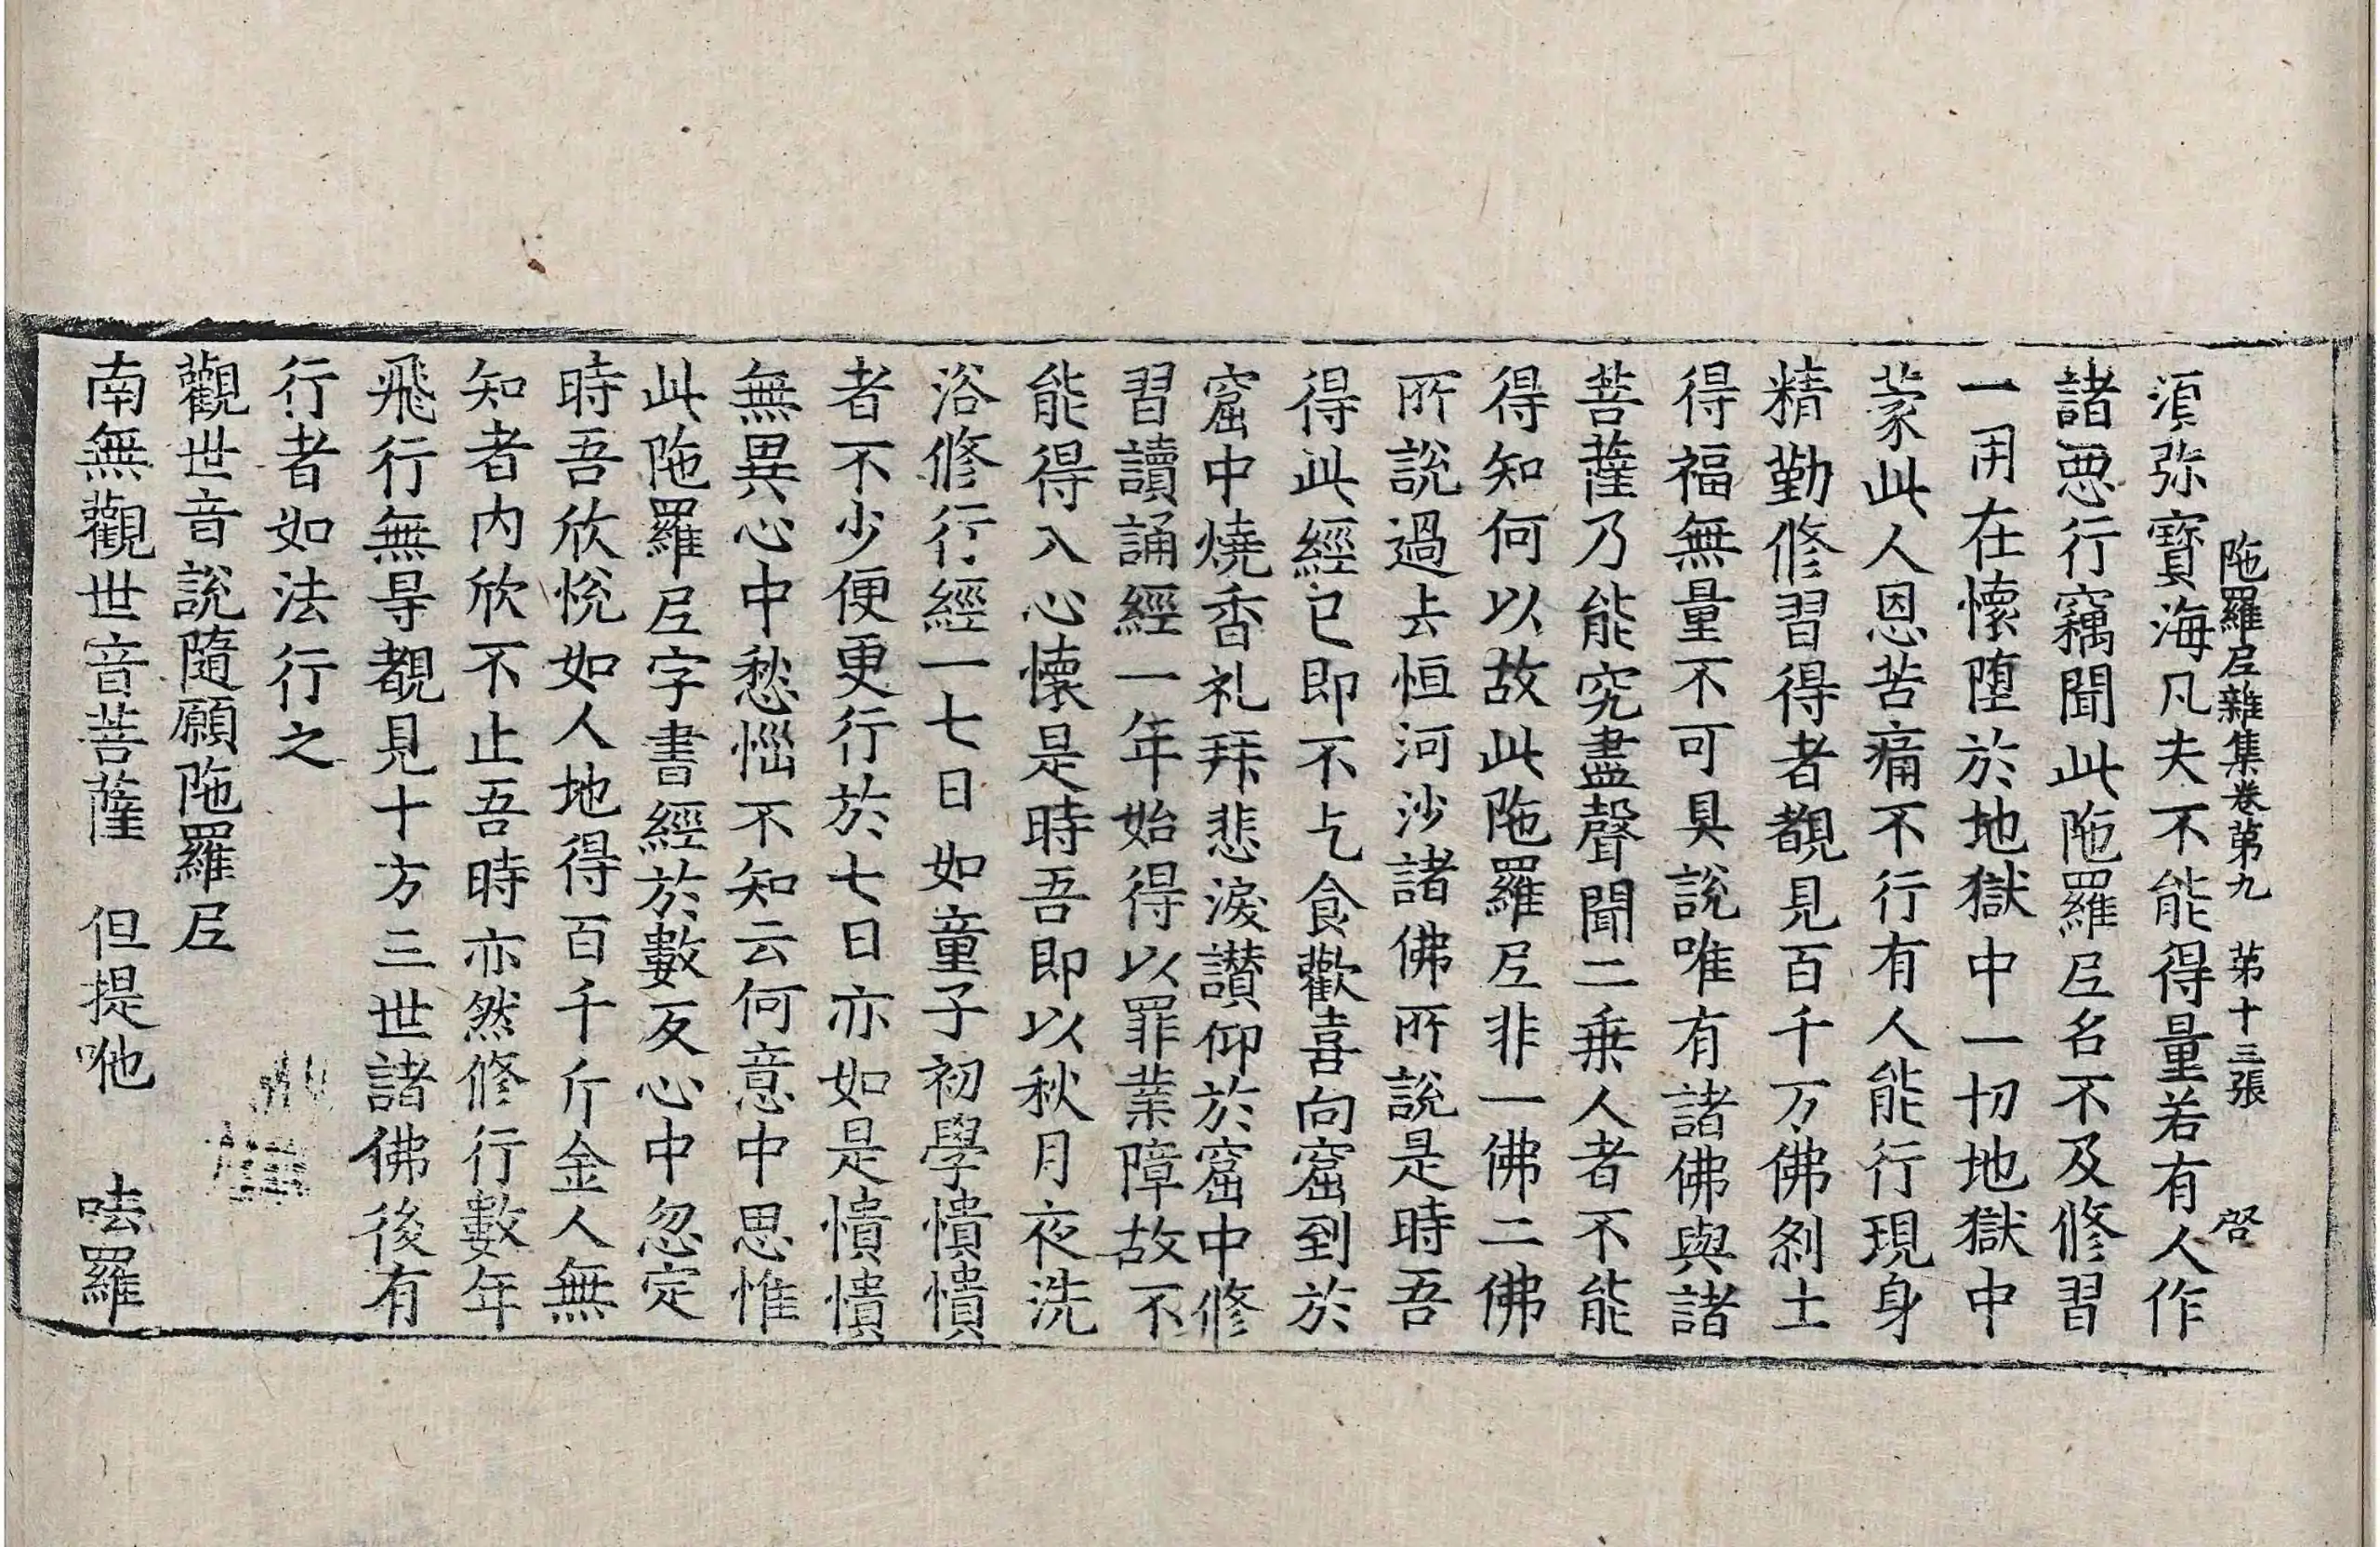 陁羅尼雜集卷第九　第十三張　啓
湏弥寳海凡夫不能得量若有人作
諸惡行竊聞此陁羅尼名不及修習
一用在懷墮於地獄中一切地獄中
蒙此人恩苦痛不行有人能行現身
精勤修習得者覩見百千万佛剎土
得福無量不可具說唯有諸佛與諸
菩薩乃能究盡聲聞二乗人者不能
得知何以故此陁羅尼非一佛二佛
所說過去恒河沙諸佛所說是時吾
得此經已即不乞食歡喜向窟到於
窟中燒香礼拜悲淚讃仰於窟中修
習讀誦經一年始得以罪業障故不
能得入心懷是時吾即以秋月夜洗
浴修行經一七日如童子初學憒憒
者不少便更行於七日亦如是憒憒
無異心中愁惱不知云何意中思惟
此陁羅尼字書經於數反心中忽定
時吾欣悅如人地得百千斤金人無
知者内欣不止吾時亦然修行數年
飛行無㝵覩見十方三世諸佛後有
行者如法行之
觀世音說隨願陁羅尼
南無觀世音菩薩　但提咃　呿羅